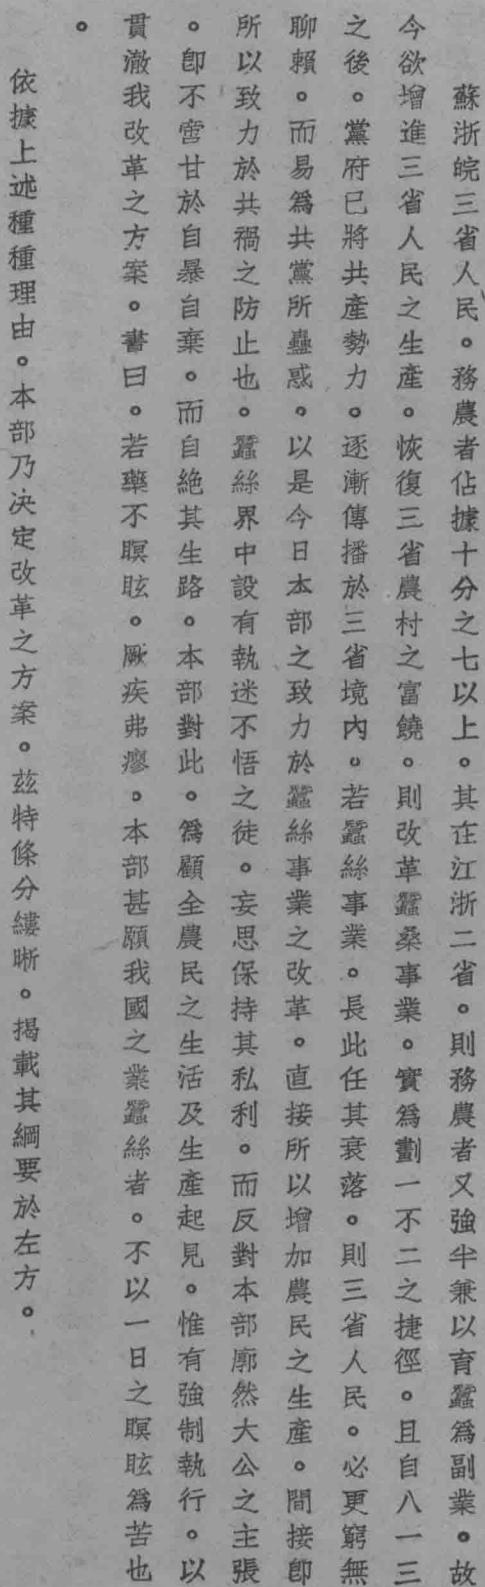 蘇浙皖三省人民。務農者佔據十分之七以上。其在江浙二省。則務農者又強半兼以育蠶爲副業。故
今欲增進三省人民之生產。恢復三省農村之富饒。則改革蠶桑事業。實爲劃一不二之捷徑。且自八一三
之後。黨府已將共產勢力。逐漸傳播於三省境內。若蠶絲事業。長此任其衰落。則三省人民。必更窮無
聊賴。而易爲共黨所蠱惑。以是今日本部之致力於蠶絲事業之改革。直接所以增加農民之生產。間接卽
所以致力於共禍之防止也。蠶絲界中設有執迷不悟之徒。妄思保持其私利。而反對本部廓然大公之主張
。卽不啻甘於自暴自棄。而自絕其生路。本部對此。爲顧全農民之生活及生產起見。惟有強制執行。以
貫澈我改革之方案。書曰。若藥不瞑眩。厥疾弗瘳。本部甚願我國之業蠶絲者。不以一日之瞑眩爲苦也
。
依據上述種種理由。本部乃決定改革之方案。茲特條分縷晰。揭載其綱要於左方。